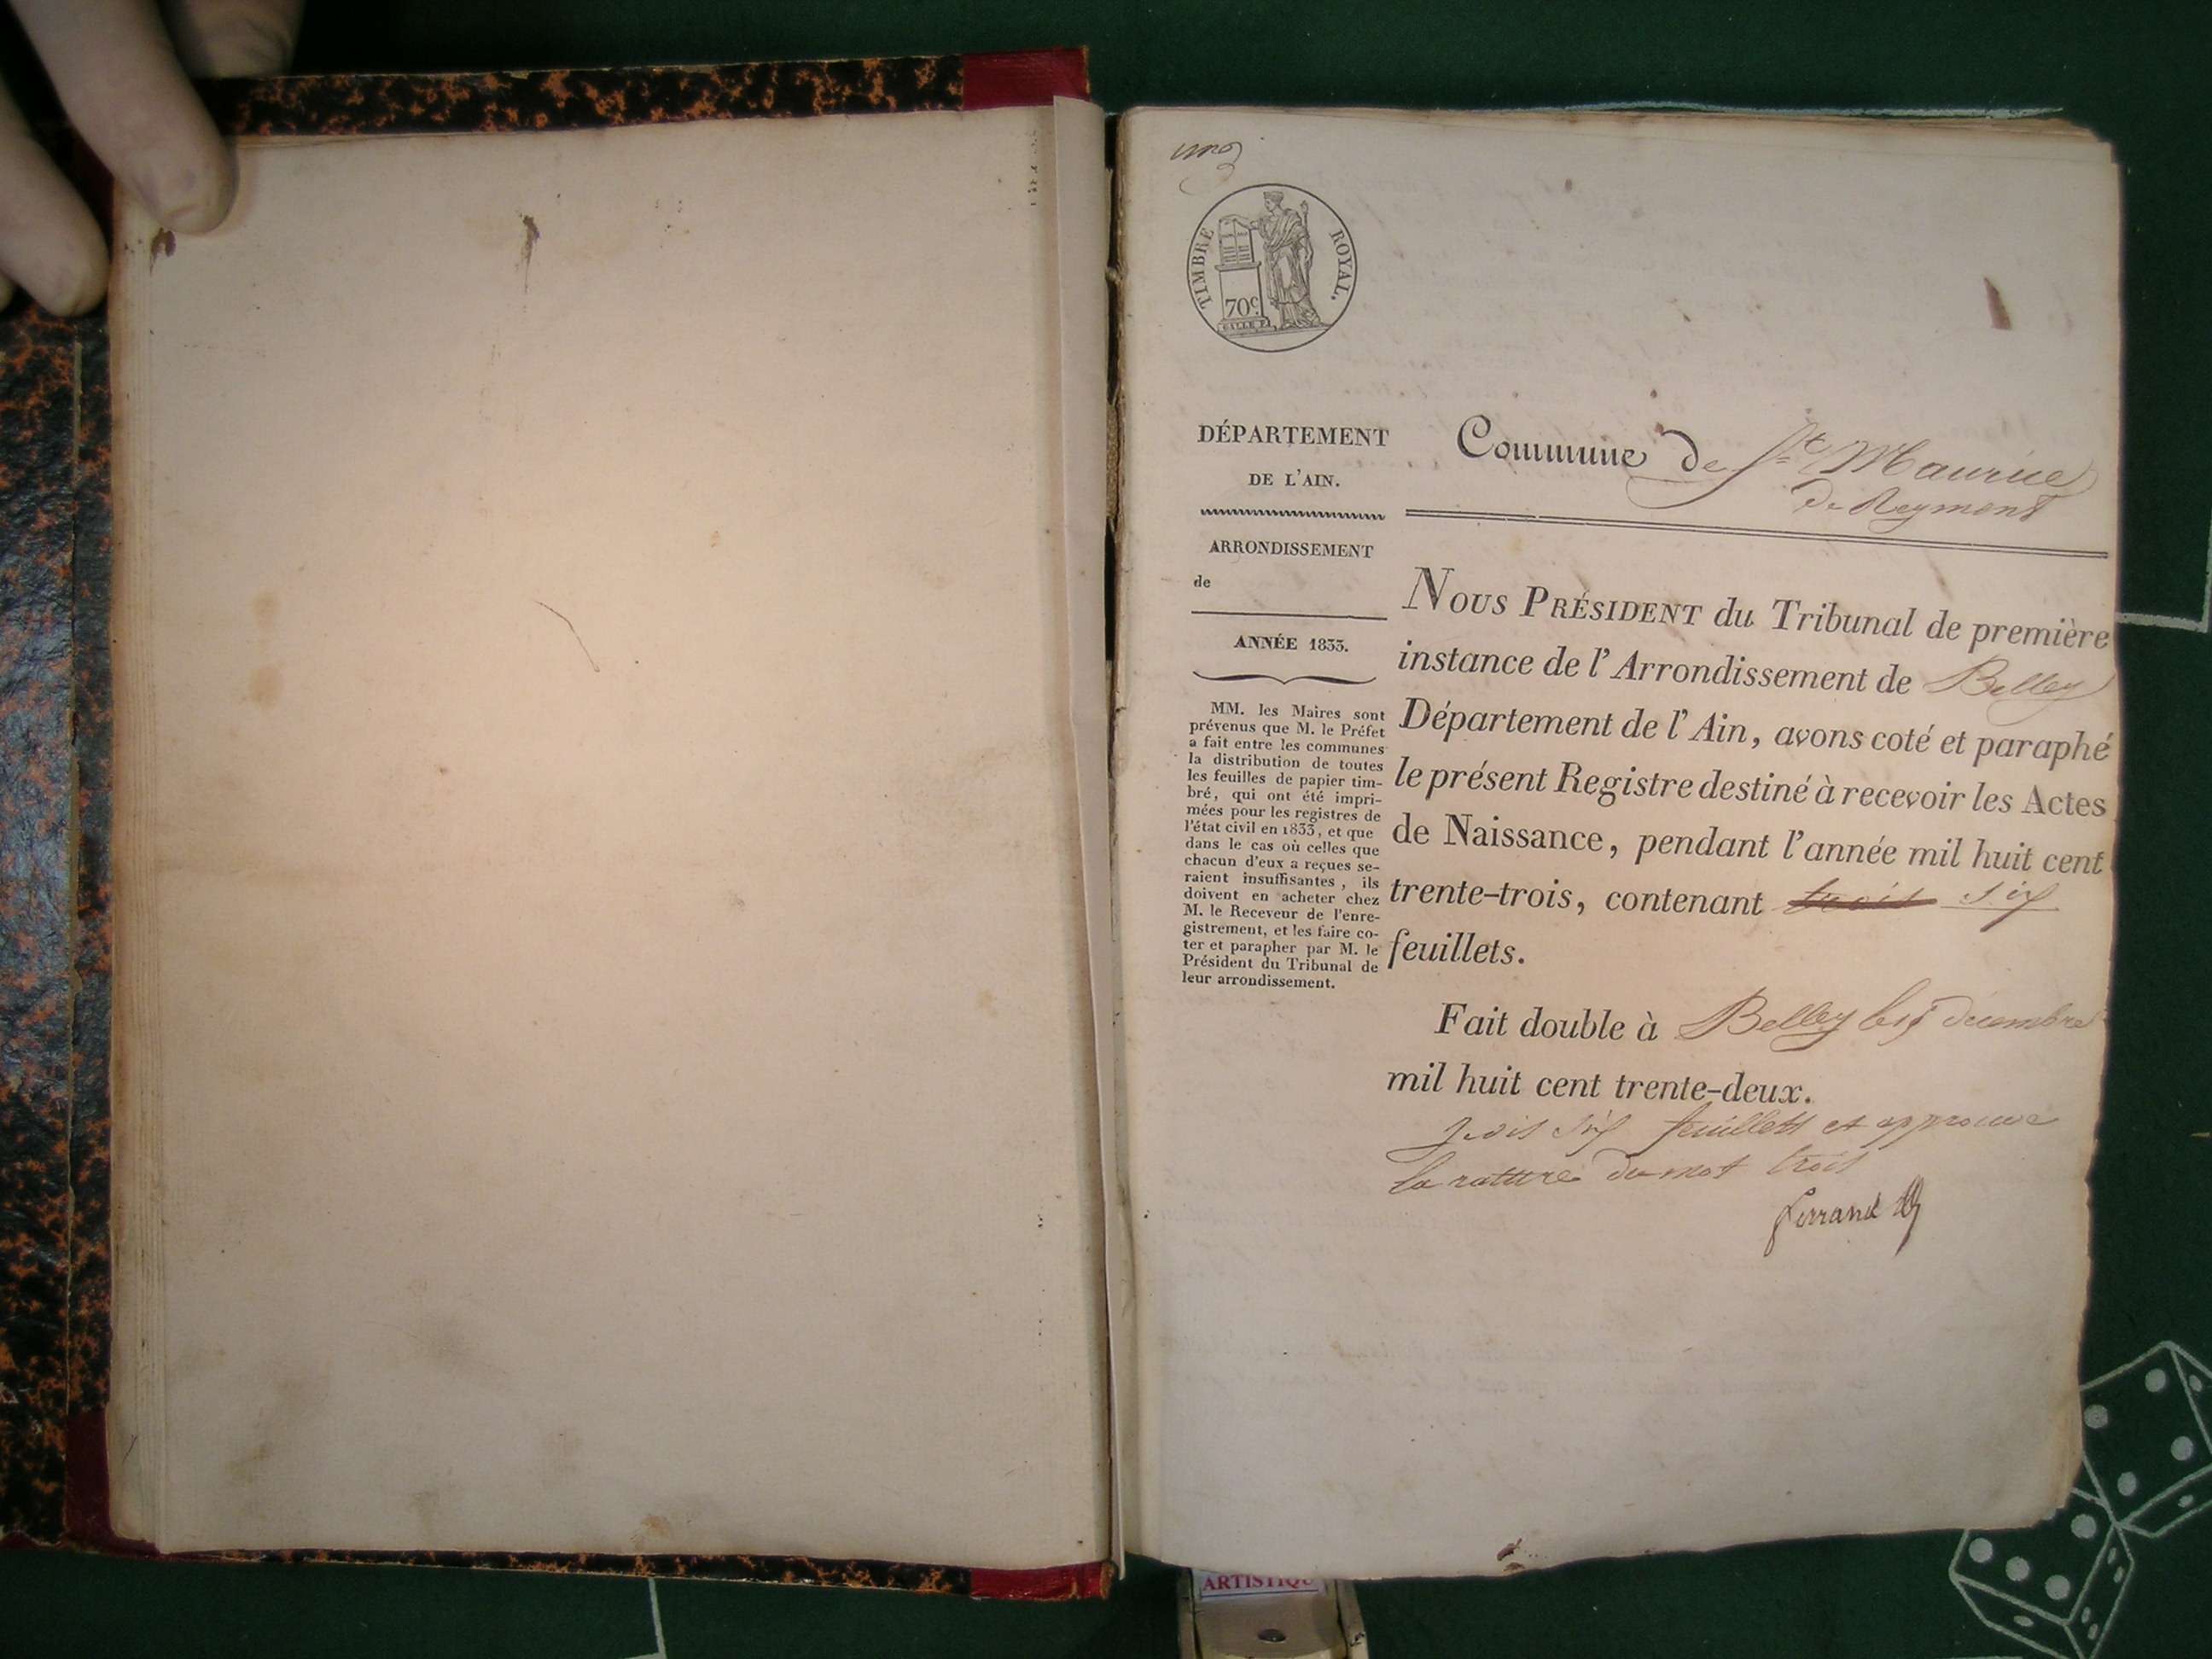 TIMBRE ROYAL.
70c.
DÉPARTEMENT
DE L'AIN.
ARRONDISSEMENT
de
ANNÉE 1833.
MM. les Maires sont
prévenus que M. le Préfet
a fait entre les communes
la distribution de toutes
les feuilles de papier tim-
bré, qui ont été impri-
mées pour les registres de
l'état civil en 1833, et que
dans le cas où celles que
chacun d'eux a reçues se-
raient insuffisantes, ils
doivent en acheter chez
M. le Receveur de l'enre-
gistrement, et les faire co-
ter et parapher par M. le
Président du Tribunal de
leur arrondissement.
Commune de St Maurice
de Reymens
NOUS PRÉSIDENT du Tribunal de première
instance de l'Arrondissement de Belley
Département de l'Ain, avons coté et paraphé
le présent Registre destiné à recevoir les Actes
de Naissance, pendant l'année mil huit cent
trente-trois, contenant trois six
feuillets.
Fait double à Belley le décembre
mil huit cent trente-deux.
six feuillets et approuve
la rature du mot trois
Ferrand
ARTISTIQU